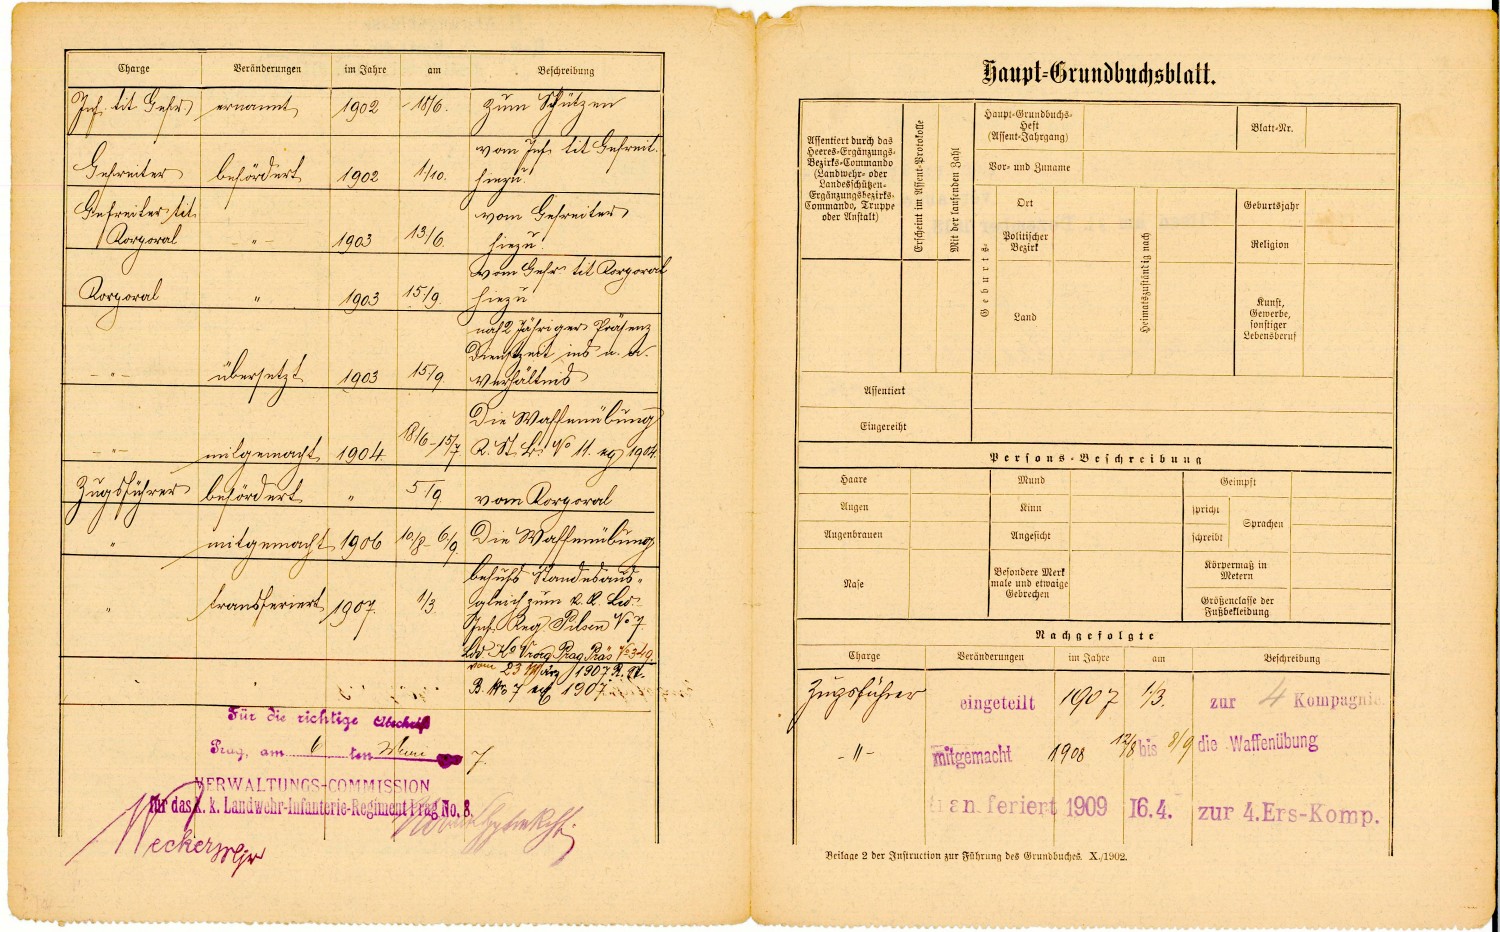 Charge Veränderungen im Jahre am Beschreibung
Inf. tit Gefr. ernannt 1902 15/6. zum Schützen
vom Inf. tit Gefreit.
Gefreiter befördert 1902 1/10. hiezu.
Gefreiter tit. vom Gefreiter
Korporal -"- 1903 13/6. hiezu.
vom Gefr. tit Korporal
Korporal " 1903 15/9. hiezu
nach 2 jähriger Präsenz
Dienstzeit ins n. a.
-"- übersetzt 1903 15/9. verhältnis
Die Waffenübung
-"- mitgemacht 1904. 18/6-15/7. K. St. B. No 11. ex 1904.
Zugsführer befördert " 5/9. vom Korporal
" mitgemacht 1906 10/8-6/9. Die Waffenübung
behufs Standesaus-
" transferiert 1907. 1/3. gleich zum k. k. Lw.
Inf. Reg. Pilsen No 7
Prag Präs No 349.
vom 23 März 1907. K. St.
B. No 7 ex 1907.
Für die richtige Abschrift
Prag, am 6 ten 7.
VERWALTUNGS-COMMISSION
für das k. k. Landwehr-Infanterie-Regiment Prag No. 8.
Wecker Mjr
Haupt-Grundbuchsblatt.
Assentiert durch das
Heeres-Ergänzungs-
Bezirks-Commando
(Landwehr- oder
Landesschützen-
Ergänzungsbezirks-
Commando, Truppe
oder Anstalt)
Erscheint im Assent-Protokolle
Mit der laufenden Zahl
Haupt-Grundbuchs-
Heft
(Assent-Jahrgang)
Blatt-Nr.
Vor- und Zuname
Geburts-
Ort
Politischer
Bezirk
Land
Heimatszuständig nach
Geburtsjahr
Religion
Kunst,
Gewerbe,
sonstiger
Lebensberuf
Assentiert
Eingereiht
Persons-Beschreibung
Haare Mund Geimpft
Augen Kinn spricht Sprachen
Augenbrauen Angesicht schreibt
Nase
Besondere Merk
male und etwaige
Gebrechen
Körpermaß in
Metern
Größenclasse der
Fußbekleidung
Nachgefolgte
Charge Veränderungen im Jahre am Beschreibung
Zugsführer eingeteilt 1907 1/3. zur 4 Kompagnie.
-"- mitgemacht 1908 12/8 bis 8/9 die Waffenübung
transferiert 1909 16.4. zur 4.Ers-Komp.
Beilage 2 der Instruction zur Führung des Grundbuches. X./1902.